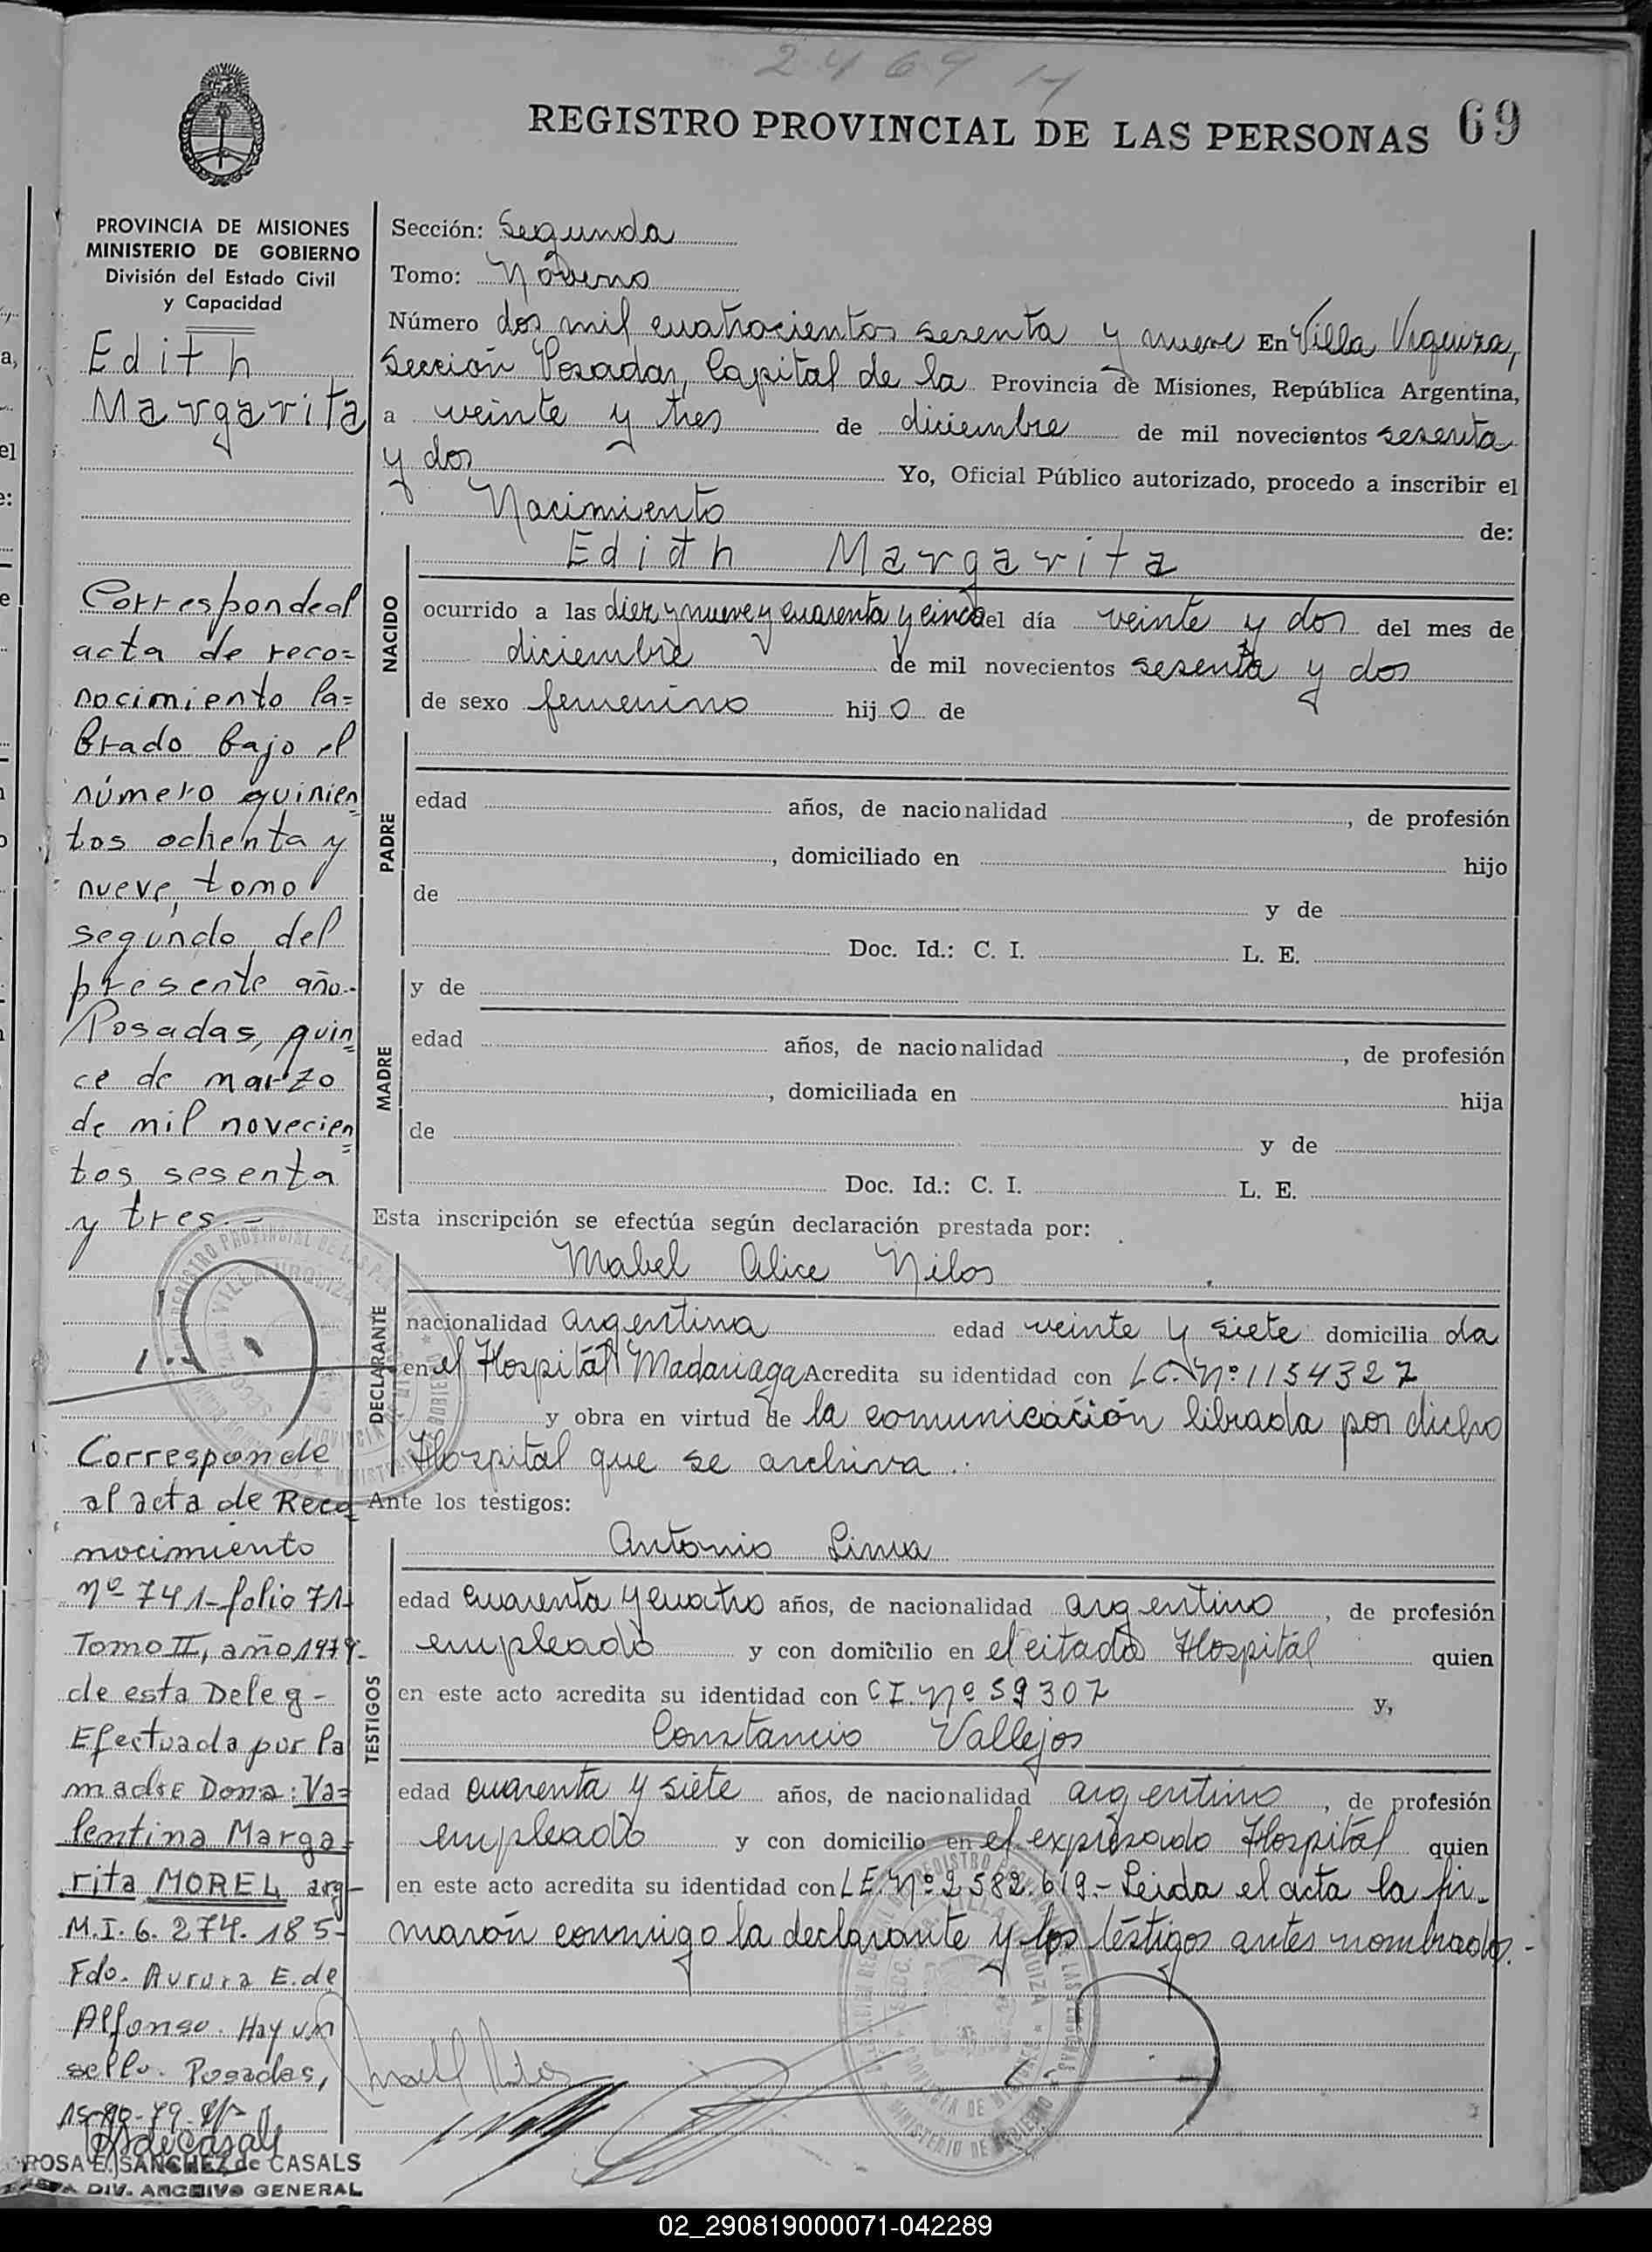 2469 H
REGISTRO PROVINCIAL DE LAS PERSONAS 69
PROVINCIA DE MISIONES
MINISTERIO DE GOBIERNO
División del Estado Civil
y Capacidad
Edith
Margarita
Correspondeal
acta de reco=
nocimiento la=
brado bajo el
número quinien
tos ochenta y
nueve, tomo
segundo del
presente año.-
Posadas, quin
ce de marzo
de mil novecien
tos sesenta
y tres.-
Corresponde
al acta de Reco
nocimiento
Nº 741-folio 71-
Tomo II, año 1979-
de esta Deleg-
Efectuada por la
madre Dona: Va=
lentina Marga=
rita MOREL arg-
M.I. 6.274.185-
Fdo. Aurora E. de
Alfonso. Hay un
sello. Posadas,
15-10-79.
ROSA E. SANCHEZ de CASALS
DIV. ARCHIVO GENERAL
Sección: Segunda
Tomo: Noveno
Número dos mil cuatrocientos sesenta y nueve En Villa Urquiza,
Sección Posadas, Capital de la Provincia de Misiones, República Argentina,
a veinte y tres de diciembre de mil novecientos sesenta
y dos Yo, Oficial Público autorizado, procedo a inscribir el
Nacimiento de:
NACIDO
Edith Margarita
ocurrido a las diez y nueve y cuarenta y cinco del día veinte y dos del mes de
diciembre de mil novecientos sesenta y dos
de sexo femenino hij o de
PADRE
edad años, de nacionalidad , de profesión
, domiciliado en hijo
de y de
Doc. Id.: C. I. L. E.
MADRE
y de
edad años, de nacionalidad , de profesión
, domiciliada en hija
de y de
Doc. Id.: C. I. L. E.
Esta inscripción se efectúa según declaración prestada por:
DECLARANTE
Mabel Alice Nilos
nacionalidad argentina edad veinte y siete domicilia da
en el Hospital Madariaga Acredita su identidad con L.C. Nº 1154327
y obra en virtud de la comunicación librada por dicho
Hospital que se archiva.
Ante los testigos:
TESTIGOS
Antonio Lima
edad cuarenta y cuatro años, de nacionalidad argentino, de profesión
empleado y con domicilio en el citado Hospital quien
en este acto acredita su identidad con C I. Nº 59307 y,
Constancio Vallejos
edad cuarenta y siete años, de nacionalidad argentino, de profesión
empleado y con domicilio en el expresado Hospital quien
en este acto acredita su identidad con L E. Nº 2582.619.- Leida el acta la fir-
marón conmigo la declarante y los testigos antes nombrados.-
02_290819000071-042289